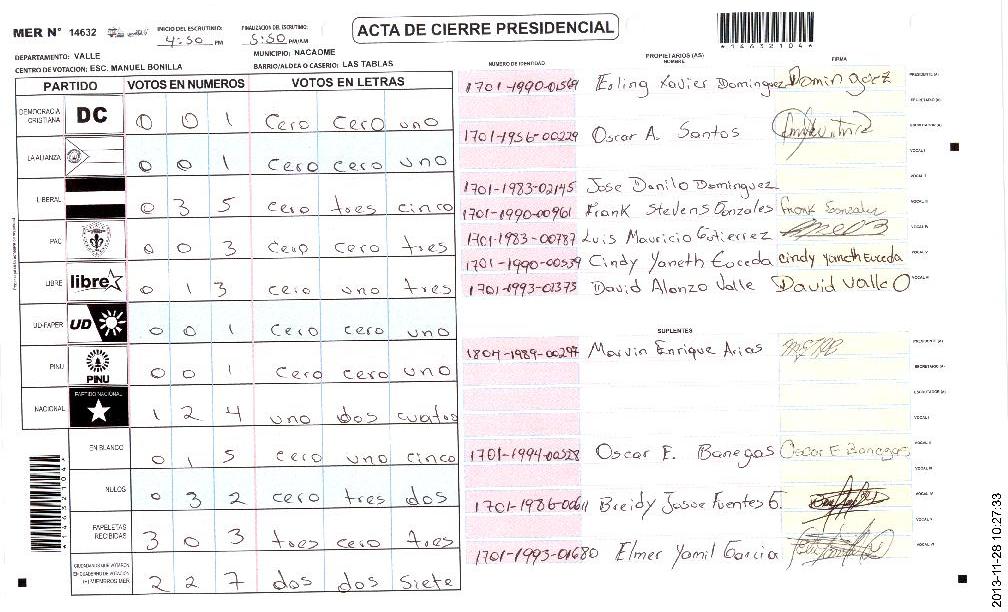 MER N° 14632 INICIO DEL ESCRUTINIO: 4:50 PM FINALIZACION DEL ESCRUTINIO: 5:50 PM/AM ACTA DE CIERRE PRESIDENCIAL
*14632104*
DEPARTAMENTO: VALLE MUNICIPIO: NACAOME
CENTRO DE VOTACION: ESC. MANUEL BONILLA BARRIO/ALDEA O CASERIO: LAS TABLAS
PARTIDO VOTOS EN NUMEROS VOTOS EN LETRAS
DEMOCRACIA CRISTIANA DC 0 0 1 cero cero uno
LA ALIANZA 0 0 1 cero cero uno
LIBERAL 0 3 5 cero tres cinco
PAC 0 0 3 cero cero tres
LIBRE libre 0 1 3 cero uno tres
UD-FAPER UD 0 0 1 cero cero uno
PINU PINU 0 0 1 cero cero uno
NACIONAL PARTIDO NACIONAL 1 2 4 uno dos cuatro
EN BLANCO 0 1 5 cero uno cinco
NULOS 0 3 2 cero tres dos
PAPELETAS RECIBIDAS 3 0 3 tres cero tres
CIUDADANOS QUE VOTARON EN CUADERNO DE VOTACION (+) MIEMBROS MER 2 2 7 dos dos siete
*14632104*
PROPIETARIOS (AS)
NUMERO DE IDENTIDAD NOMBRE FIRMA
1701-1990-01569 Erling Xavier Dominguez Dominguez PRESIDENTE (A)
SECRETARIO (A)
1701-1956-00229 Oscar A. Santos ESCRUTADOR (A)
VOCAL I
1701-1983-02145 Jose Danilo Dominguez VOCAL II
1701-1990-00961 Frank Stevens Gonzales Frank Gonzales VOCAL III
1701-1983-00787 Luis Mauricio Gutierrez VOCAL IV
1701-1990-00539 Cindy Yaneth Euceda cindy yaneth Euceda VOCAL V
1701-1993-01375 David Alonzo Valle David Valle VOCAL VI
SUPLENTES
1804-1989-00297 Marvin Enrique Arias PRESIDENTE (A)
SECRETARIO (A)
ESCRUTADOR (A)
VOCAL I
1701-1994-00528 Oscar E. Banegas Oscar E Banegas VOCAL II
VOCAL III
1701-1986-0061 Breidy Josue Fuentes G. VOCAL IV
VOCAL V
1701-1993-01680 Elmer Yamil Garcia VOCAL VI
2013-11-28 10:27:33